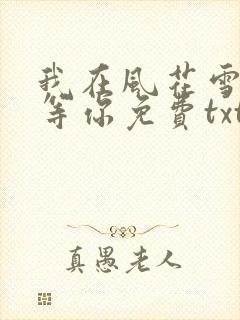 我在風花雪
等你免費txt
真愚老人